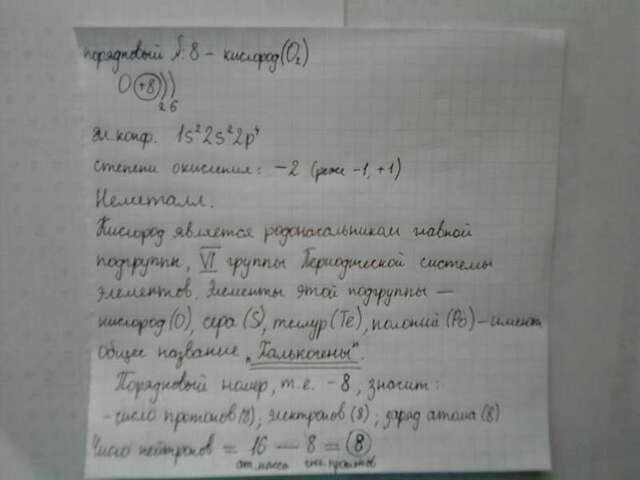 порядковый №8 - кислород (O₂)
O +8 ) )
2 6
эл. конф. 1s² 2s² 2p⁴
степени окисления: -2 (реже -1, +1)
Неметалл.
Кислород является родоначальником главной
подгруппы, VI группы Периодической системы
элементов. Элементы этой подгруппы —
кислород (O), сера (S), теллур (Te), полоний (Po) - имеют
общее название „Халькогены".
Порядковый номер, т.е. -8, значит:
- число протонов (8); электронов (8); заряд атома (8)
Число нейтронов = 16 — 8 = 8
ат. масса протонов